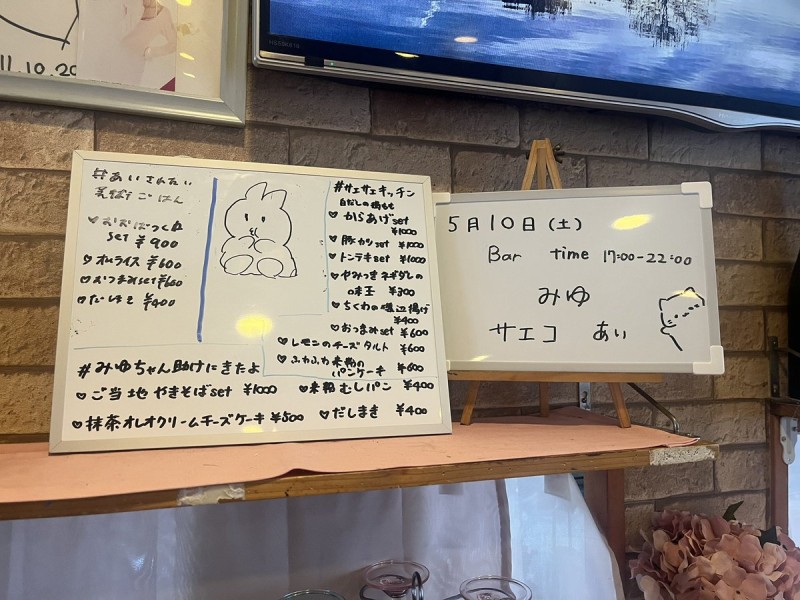 11.10.20
#あいされたい
気まぐれごはん
♡おおばつくね
set ¥900
♡オムライス ¥600
♡おつまみset ¥600
♡だしまき ¥400
#サエサエキッチン
白だしの鶏もも
♡からあげset
¥1000
♡豚カツset ¥1000
♡トンテキset ¥1000
♡やみつきネギダレの
味玉 ¥300
♡ちくわの磯辺揚げ
¥400
♡おつまみset ¥600
♡レモンのチーズタルト ¥600
♡ふわふわ米粉の
パンケーキ ¥600
#みゆちゃん助けにきたよ
♡ご当地やきそばset ¥1000
♡米粉むしパン ¥400
♡抹茶オレオクリームチーズケーキ ¥500
♡だしまき ¥400
5月10日(土)
Bar time 17:00-22:00
みゆ
サエコ あい